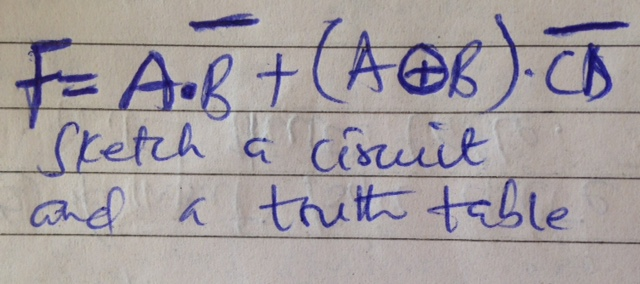 F = A·B̅ + (A⊕B)·C̅D̅
Sketch a circuit
and a truth table